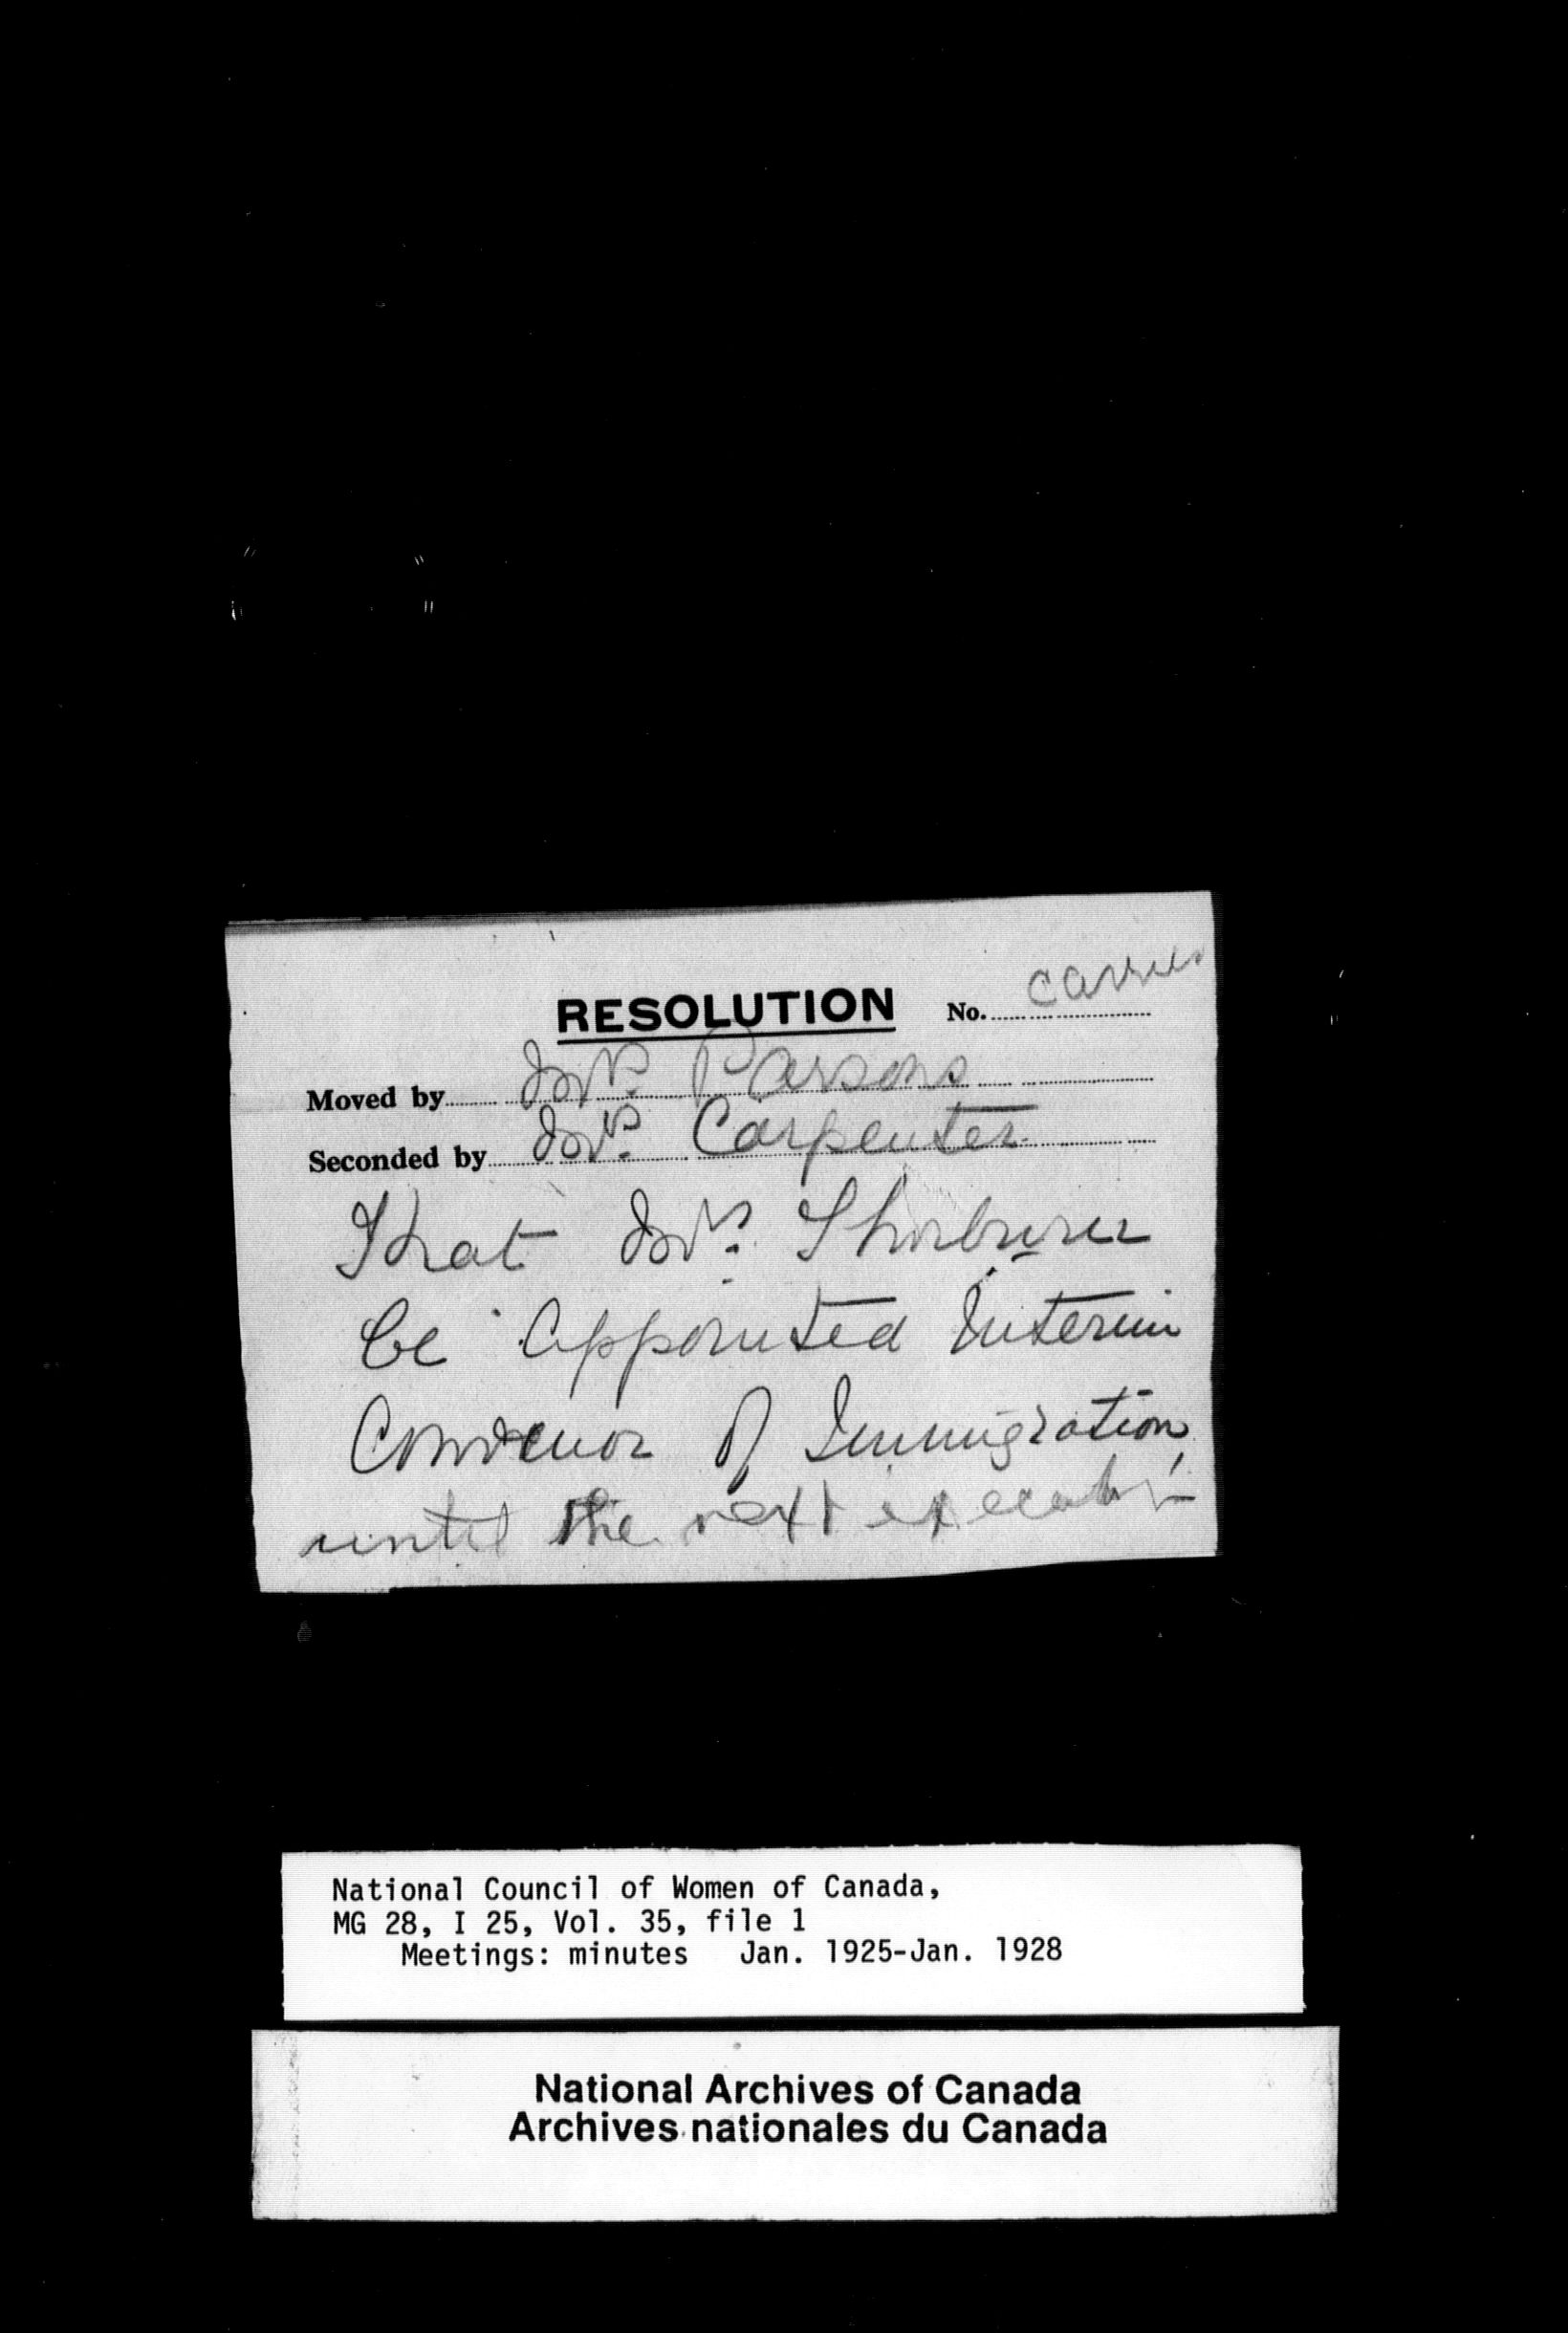 RESOLUTION No. carried
Moved by Mrs. Parsons
Seconded by Mrs. Carpenter
That Mrs.
be appointed Interim
Convenor of Immigration
until the next executive
National Council of Women of Canada,
MG 28, I 25, Vol. 35, file 1
Meetings: minutes Jan. 1925-Jan. 1928
National Archives of Canada
Archives nationales du Canada